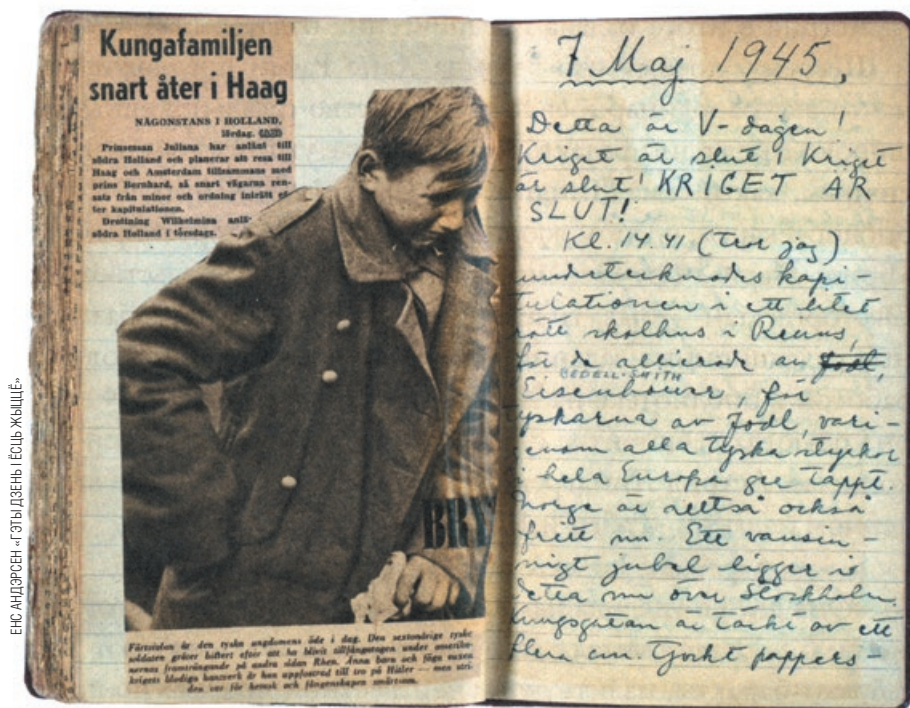 Kungafamiljen
snart åter i Haag
NÅGONSTANS I HOLLAND,
lördag.
Prinsessan Juliana har anlänt till
södra Holland och planerar att resa till
Haag och Amsterdam tillsammans med
prins Bernhard, så snart vägarna ren-
sats från minor och ordning inträtt ef-
ter kapitulationen.
Drottning Wilhelmina anlä-
södra Holland i torsdags.
BRY
Förtvivlan är den tyska ungdomens öde i dag. Den sextonårige tyske
soldaten gråter bittert efter att ha blivit tillfångatagen under amerika-
nernas framträngande på andra sidan Rhen. Ännu barn och föga vuxen
krigets blodiga hantverk är han uppfostrad till tro på Hitler — men
den var för hemsk och fångenskapen
7 Maj 1945.
Detta är V-dagen!
Kriget är slut! Kriget
är slut! KRIGET ÄR
SLUT!
Kl. 14.41 (tror jag)
undertecknades kapi-
tulationen i ett litet
rött skolhus i Reims,
för de allierade av Jodl,
BEDELL-SMITH
Eisenhower, för
tyskarna av Jodl, vari-
genom alla tyska styrkor
i hela Europa ger tappt.
Norge är alltså också
fritt nu. Ett vansin-
nigt jubel ligger i
detta nu över Stockholm.
Kungsgatan är täckt av ett
flera cm. tjockt pappers-
ЕНС АНДЭРСЕН «ГЭТЫ ДЗЕНЬ І ЁСЦЬ ЖЫЦЦЁ»